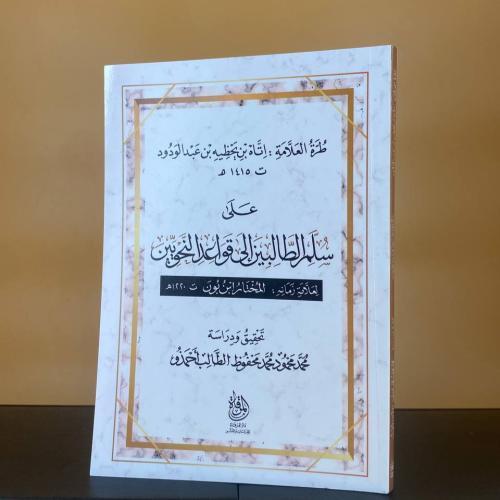 طرة العلامة : اتاه بن يحظيه بن عبد الودود
ت ١٤١٥ هـ
على
سلم الطالبين إلى قواعد النحويين
لعلامة زمانه : المختار ابن بون ت ١٢٢٠ هـ
تحقيق ودراسة
محمد محمود محمد محفوظ الطالب أحمدو